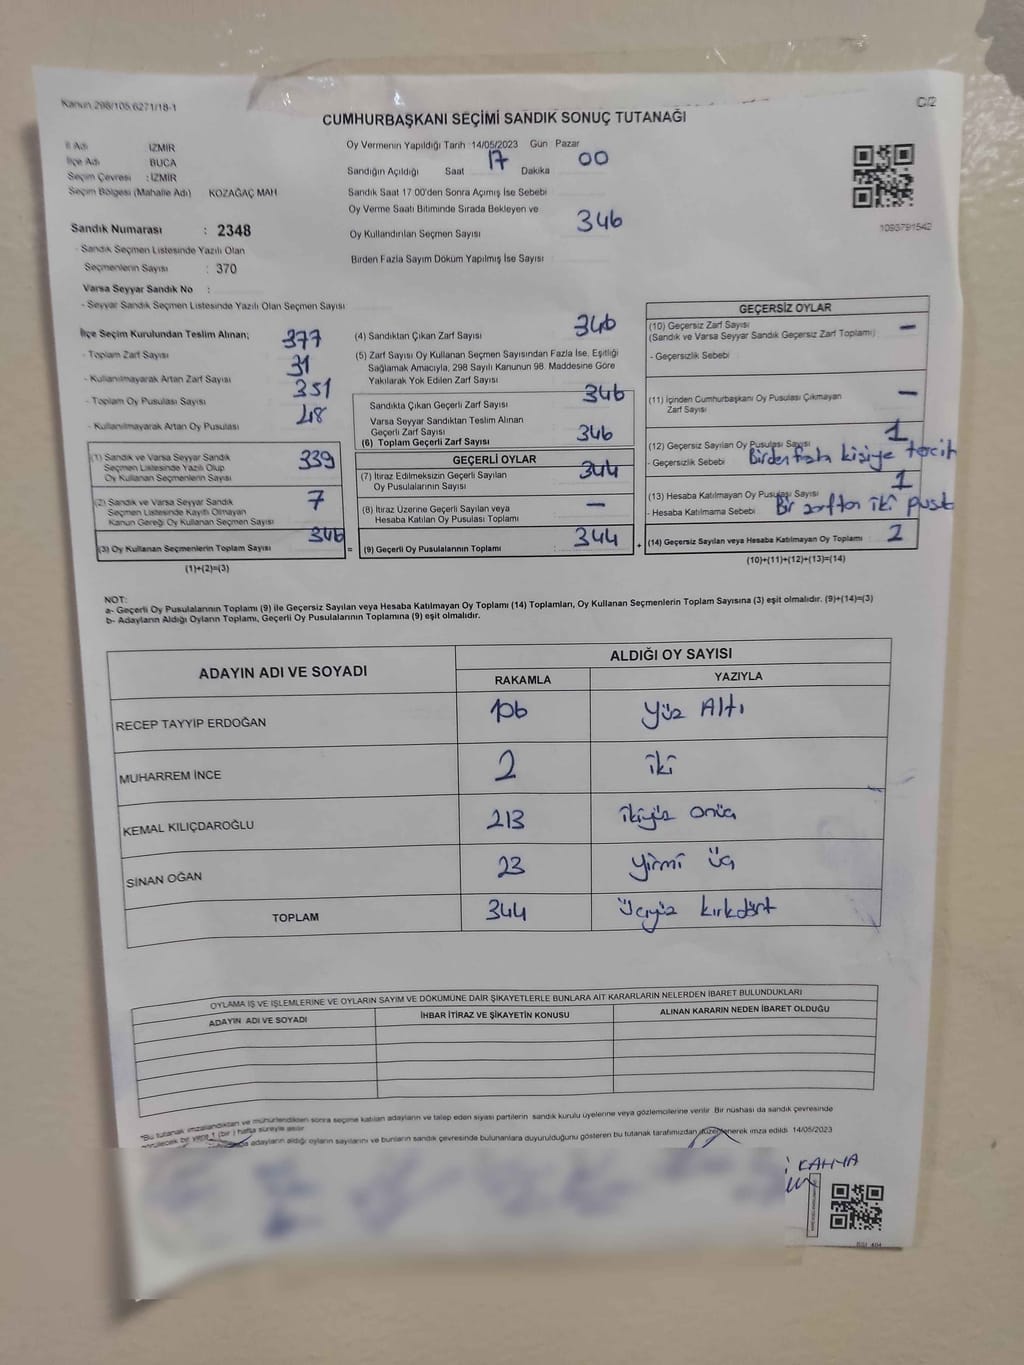 Kanun 298/105.6271/18-1
C/2
CUMHURBAŞKANI SEÇİMİ SANDIK SONUÇ TUTANAĞI
İl Adı İZMİR
İlçe Adı BUCA
Seçim Çevresi : İZMİR
Seçim Bölgesi (Mahalle Adı) KOZAĞAÇ MAH
Sandık Numarası : 2348
- Sandık Seçmen Listesinde Yazılı Olan
Seçmenlerin Sayısı : 370
Varsa Seyyar Sandık No :
- Seyyar Sandık Seçmen Listesinde Yazılı Olan Seçmen Sayısı
Oy Vermenin Yapıldığı Tarih 14/05/2023 Gün Pazar
Sandığın Açıldığı Saat 17 Dakika 00
Sandık Saat 17 00'den Sonra Açımış İse Sebebi
Oy Verme Saati Bitiminde Sırada Bekleyen ve
Oy Kullandırılan Seçmen Sayısı 346
Birden Fazla Sayım Döküm Yapılmış İse Sayısı
1093791542
İlçe Seçim Kurulundan Teslim Alınan;
- Toplam Zarf Sayısı 377
- Kullanılmayarak Artan Zarf Sayısı 31
- Toplam Oy Pusulası Sayısı 351
- Kullanılmayarak Artan Oy Pusulası 48
(1) Sandık ve Varsa Seyyar Sandık
Seçmen Listesinde Yazılı Olup
Oy Kullanan Seçmenlerin Sayısı 339
(2) Sandık ve Varsa Seyyar Sandık
Seçmen Listesinde Kayıtlı Olmayan
Kanun Gereği Oy Kullanan Seçmen Sayısı 7
(3) Oy Kullanan Seçmenlerin Toplam Sayısı 346
(1)+(2)=(3)
(4) Sandıktan Çıkan Zarf Sayısı 346
(5) Zarf Sayısı Oy Kullanan Seçmen Sayısından Fazla İse, Eşitliği
Sağlamak Amacıyla, 298 Sayılı Kanunun 98. Maddesine Göre
Yakılarak Yok Edilen Zarf Sayısı
Sandıkta Çıkan Geçerli Zarf Sayısı 346
Varsa Seyyar Sandıktan Teslim Alınan
Geçerli Zarf Sayısı
(6) Toplam Geçerli Zarf Sayısı 346
GEÇERLİ OYLAR
(7) İtiraz Edilmeksizin Geçerli Sayılan
Oy Pusulalarının Sayısı 344
(8) İtiraz Üzerine Geçerli Sayılan veya
Hesaba Katılan Oy Pusulası Toplamı —
= (9) Geçerli Oy Pusulalarının Toplamı 344
GEÇERSİZ OYLAR
(10) Geçersiz Zarf Sayısı —
(Sandık ve Varsa Seyyar Sandık Geçersiz Zarf Toplamı)
- Geçersizlik Sebebi
(11) İçinden Cumhurbaşkanı Oy Pusulası Çıkmayan
Zarf Sayısı —
(12) Geçersiz Sayılan Oy Pusulası Sayısı 1
- Geçersizlik Sebebi Birden fazla kişiye tercih
(13) Hesaba Katılmayan Oy Pusulası Sayısı 1
- Hesaba Katılmama Sebebi Bir zarftan iki pusula
+ (14) Geçersiz Sayılan veya Hesaba Katılmayan Oy Toplamı 2
(10)+(11)+(12)+(13)=(14)
NOT:
a- Geçerli Oy Pusulalarının Toplamı (9) ile Geçersiz Sayılan veya Hesaba Katılmayan Oy Toplamı (14) Toplamları, Oy Kullanan Seçmenlerin Toplam Sayısına (3) eşit olmalıdır. (9)+(14)=(3)
b- Adayların Aldığı Oyların Toplamı, Geçerli Oy Pusulalarının Toplamına (9) eşit olmalıdır.
ADAYIN ADI VE SOYADI ALDIĞI OY SAYISI
RAKAMLA YAZIYLA
RECEP TAYYİP ERDOĞAN 106 Yüz Altı
MUHARREM İNCE 2 iki
KEMAL KILIÇDAROĞLU 213 ikiyüz onüç
SİNAN OĞAN 23 yirmi üç
TOPLAM 344 üçyüz kırkdört
OYLAMA İŞ VE İŞLEMLERİNE VE OYLARIN SAYIM VE DÖKÜMÜNE DAİR ŞİKAYETLERLE BUNLARA AİT KARARLARIN NELERDEN İBARET BULUNDUKLARI
ADAYIN ADI VE SOYADI İHBAR İTİRAZ VE ŞİKAYETİN KONUSU ALINAN KARARIN NEDEN İBARET OLDUĞU
"Bu tutanak imzalandıktan ve mühürlendikten sonra seçime katılan adayların ve talep eden siyasi partilerin sandık kurulu üyelerine veya gözlemcilerine verilir Bir nüshası da sandık çevresinde
görülecek bir yere 1 (bir) hafta süreyle asılır
adayların aldığı oyların sayılarını ve bunların sandık çevresinde bulunanlara duyurulduğunu gösteren bu tutanak tarafımızdan düzenlenerek imza edildi 14/05/2023